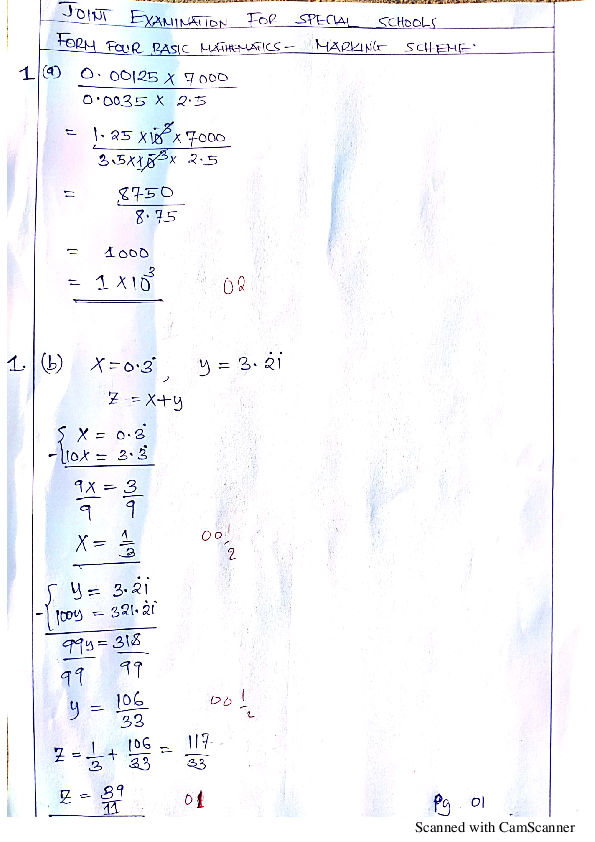 JOINT EXAMINATION FOR SPECIAL SCHOOLS
FORM FOUR BASIC MATHEMATICS - MARKING SCHEME.
1 (a) 0.00125 x 7000
0.0035 x 2.5
= 1.25 x 10⁻³ x 7000
3.5 x 10⁻³ x 2.5
= 8750
8.75
= 1000
= 1 x 10³ 02
1. (b) x = 0.3̇, y = 3.2̇1̇
z = x+y
x = 0.3̇
- 10x = 3.3̇
9x = 3
9 9
x = 1/3 00 1/2
y = 3.2̇1̇
- 100y = 321.2̇1̇
99y = 318
99 99
y = 106/33 00 1/2
z = 1/3 + 106/33 = 117/33
z = 39/11 01
Pg 01
Scanned with CamScanner